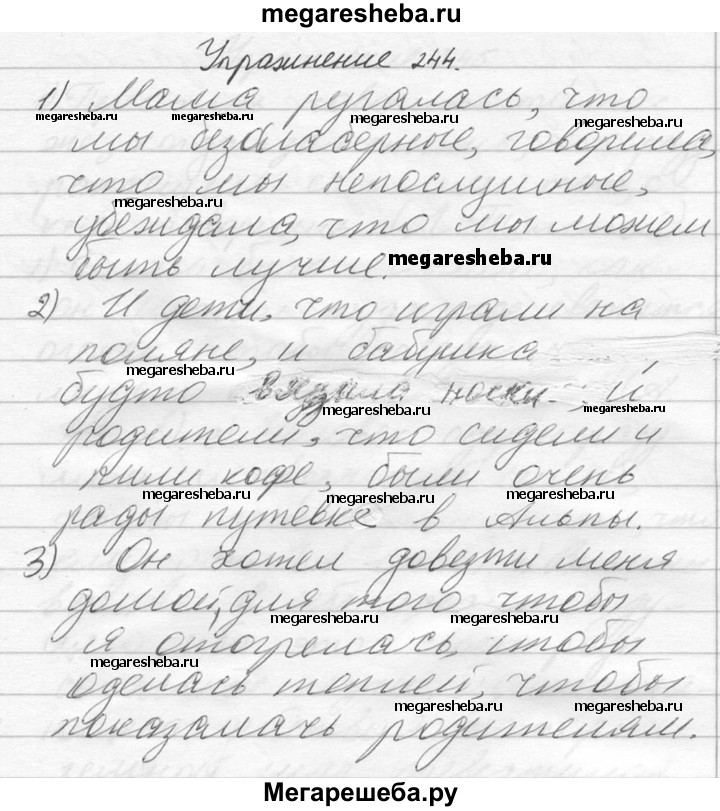 megaresheba.ru
Упражнение 244.
1) Мама ругалась, что
megaresheba.ru megaresheba.ru megaresheba.ru megaresheba.ru
мы безалаберные, говорила,
megaresheba.ru
что мы непослушные,
megaresheba.ru
убеждала, что мы можем
быть лучше. megaresheba.ru
2) И дети, что играли на
поляне, и бабушка
megaresheba.ru megaresheba.ru
будто вязала носки и
родители, что сидели и
пили кофе, были очень
megaresheba.ru megaresheba.ru
рады путевке в Альпы.
3) Он хотел довезти меня
домой, для того чтобы
megaresheba.ru megaresheba.ru
я отогрелась, чтобы
megaresheba.ru
оделась теплей, чтобы
megaresheba.ru megaresheba.ru
показалась родителям.
Мегарешеба.ру